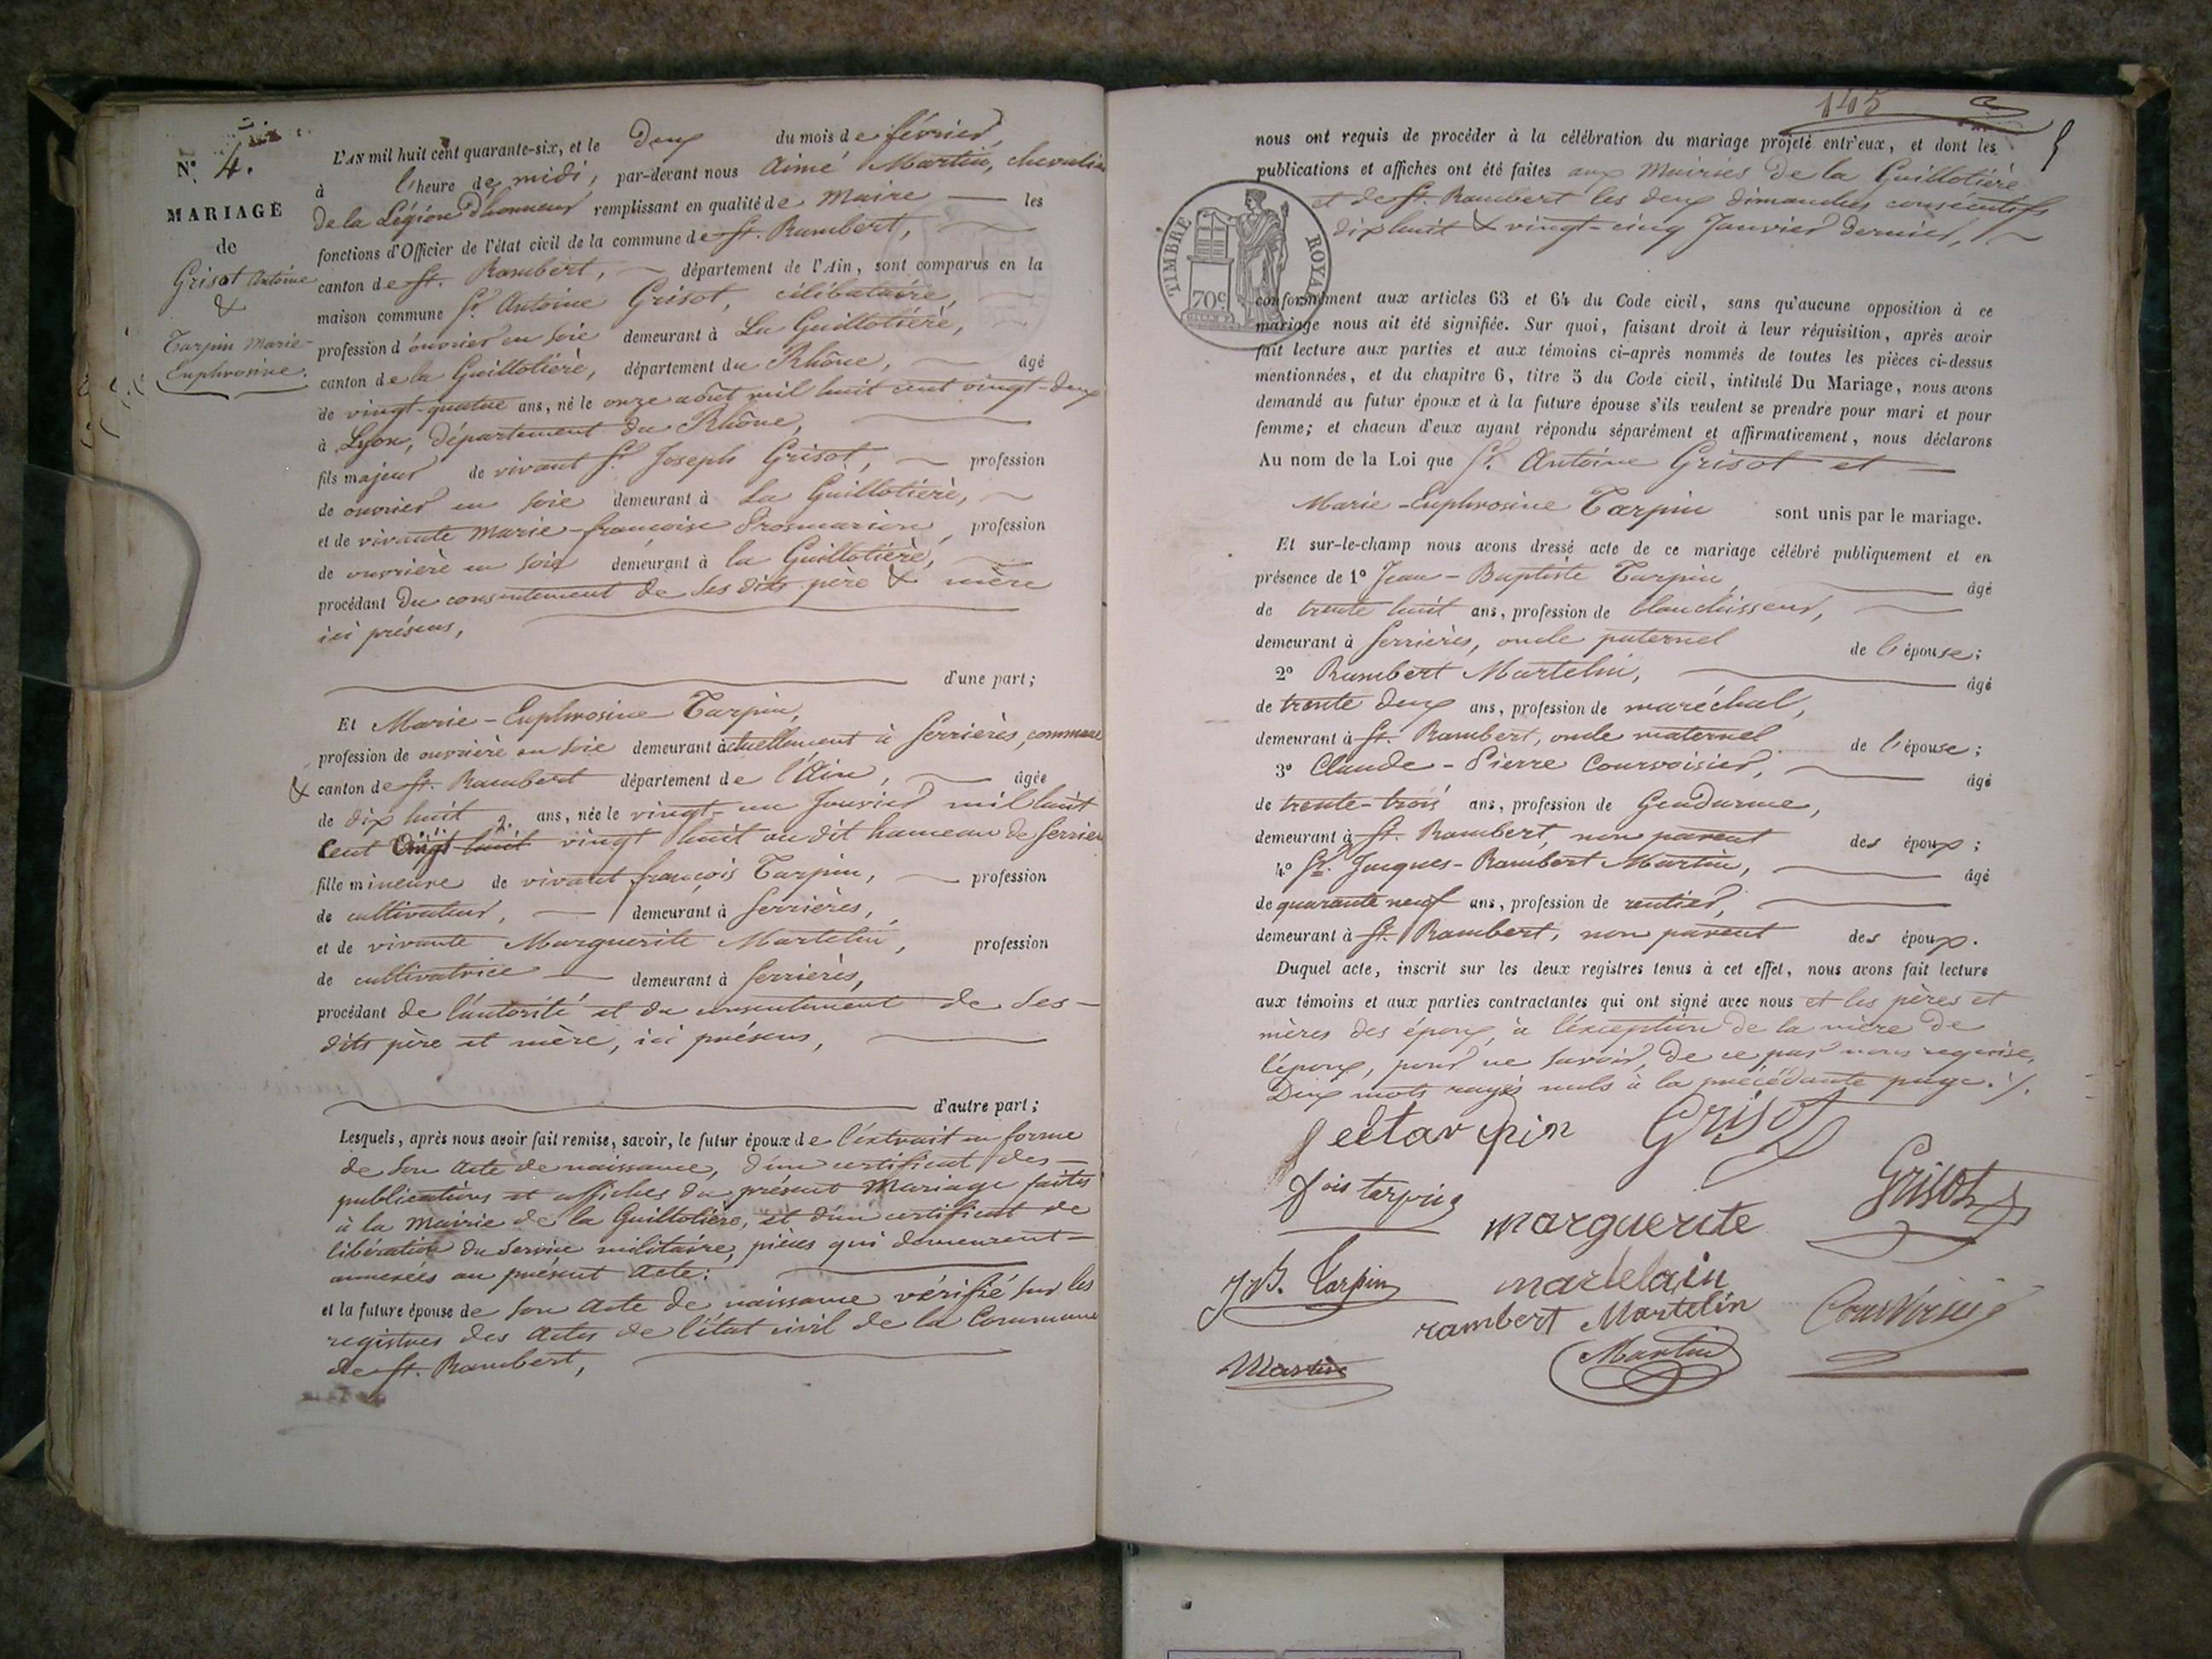 N.º 4.
MARIAGE
de
Grisot Antoine
&
Tarpin Marie-
Euphrosine.
L'AN mil huit cent quarante-six, et le deux du mois de février,
à l'heure de midi, par-devant nous Aimé Martin, chevalier
de la Légion d'honneur remplissant en qualité de Maire les
fonctions d'Officier de l'état civil de la commune de St. Rambert,
canton de St. Rambert, département de l'Ain, sont comparus en la
maison commune Sr. Antoine Grisot, célibataire,
profession d'ouvrier en soie demeurant à La Guillotière,
canton de la Guillotière, département du Rhône, âgé
de vingt-quatre ans, né le onze août mil huit cent vingt-deux
à Lyon, département du Rhône,
fils majeur de vivant Sr. Joseph Grisot, profession
de ouvrier en soie demeurant à La Guillotière,
et de vivante Marie-françoise profession
de ouvrière en soie demeurant à la Guillotière,
procédant du consentement de ses dits père & mère
ici présens,
d'une part;
Et Marie-Euphrosine Tarpin,
profession de ouvrière en soie demeurant actuellement à Serrières, commune
& canton de St. Rambert département de l'Ain, âgée
de dix huit ans, née le vingt-un Janvier mil huit
cent vingt huit vingt huit au dit hameau de Serrières
fille mineure de vivant françois Tarpin, profession
de cultivateur, demeurant à Serrières,
et de vivante Marguerite Martelin, profession
de cultivatrice demeurant à Serrières,
procédant de l'autorité et du consentement de ses-
dits père et mère, ici présens,
d'autre part;
Lesquels, après nous avoir fait remise, savoir, le futur époux de l'extrait en forme
de son acte de naissance, d'un certificat des
publications et affiches du présent Mariage faites
à la Mairie de la Guillotière, et d'un certificat de
libération du service militaire, pièces qui demeurent
annexées au présent acte:
et la future épouse de son acte de naissance vérifié sur les
registres des actes de l'état civil de la Commune
de St. Rambert,
145
nous ont requis de procéder à la célébration du mariage projeté entr'eux, et dont les
publications et affiches ont été faites aux Mairies de la Guillotière
et de St. Rambert les deux dimanches consécutifs
dix huit & vingt-cinq Janvier dernier,
TIMBRE ROYAL
70c
conformément aux articles 63 et 64 du Code civil, sans qu'aucune opposition à ce
mariage nous ait été signifiée. Sur quoi, faisant droit à leur réquisition, après avoir
fait lecture aux parties et aux témoins ci-après nommés de toutes les pièces ci-dessus
mentionnées, et du chapitre 6, titre 5 du Code civil, intitulé Du Mariage, nous avons
demandé au futur époux et à la future épouse s'ils veulent se prendre pour mari et pour
femme; et chacun d'eux ayant répondu séparément et affirmativement, nous déclarons
Au nom de la Loi que Sr. Antoine Grisot et
Marie-Euphrosine Tarpin sont unis par le mariage.
Et sur-le-champ nous avons dressé acte de ce mariage célébré publiquement et en
présence de 1º Jean-Baptiste Tarpin, âgé
de trente huit ans, profession de blanchisseur,
demeurant à Serrières, oncle paternel de l'épouse;
2º Rambert Martelin, âgé
de trente deux ans, profession de maréchal,
demeurant à St. Rambert, oncle maternel de l'épouse;
3º Claude-Pierre Courvoisier, âgé
de trente-trois ans, profession de Gendarme,
demeurant à St. Rambert, non parent des époux;
4º Sr. Jacques-Rambert Martin, âgé
de quarante neuf ans, profession de rentier,
demeurant à St. Rambert, non parent des époux.
Duquel acte, inscrit sur les deux registres tenus à cet effet, nous avons fait lecture
aux témoins et aux parties contractantes qui ont signé avec nous et les pères et
mères des époux, à l'exception de la mère de
l'époux, pour ne savoir, de ce par nous requise,
Deux mots rayés nuls à la précédante page. /.
Grisot
fois tarpin
Grisot
marguerite
J B. Tarpin
martelain
rambert Martelin
Courvoisier
Martin
Martin